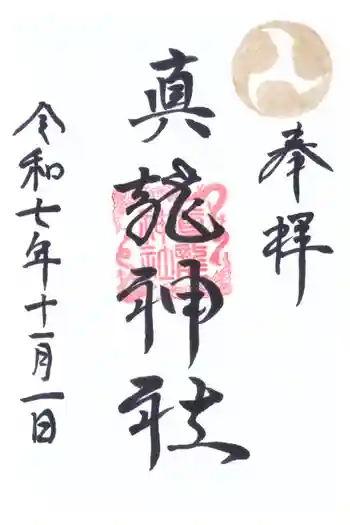 奉拝
真龍神社
令和七年十一月一日